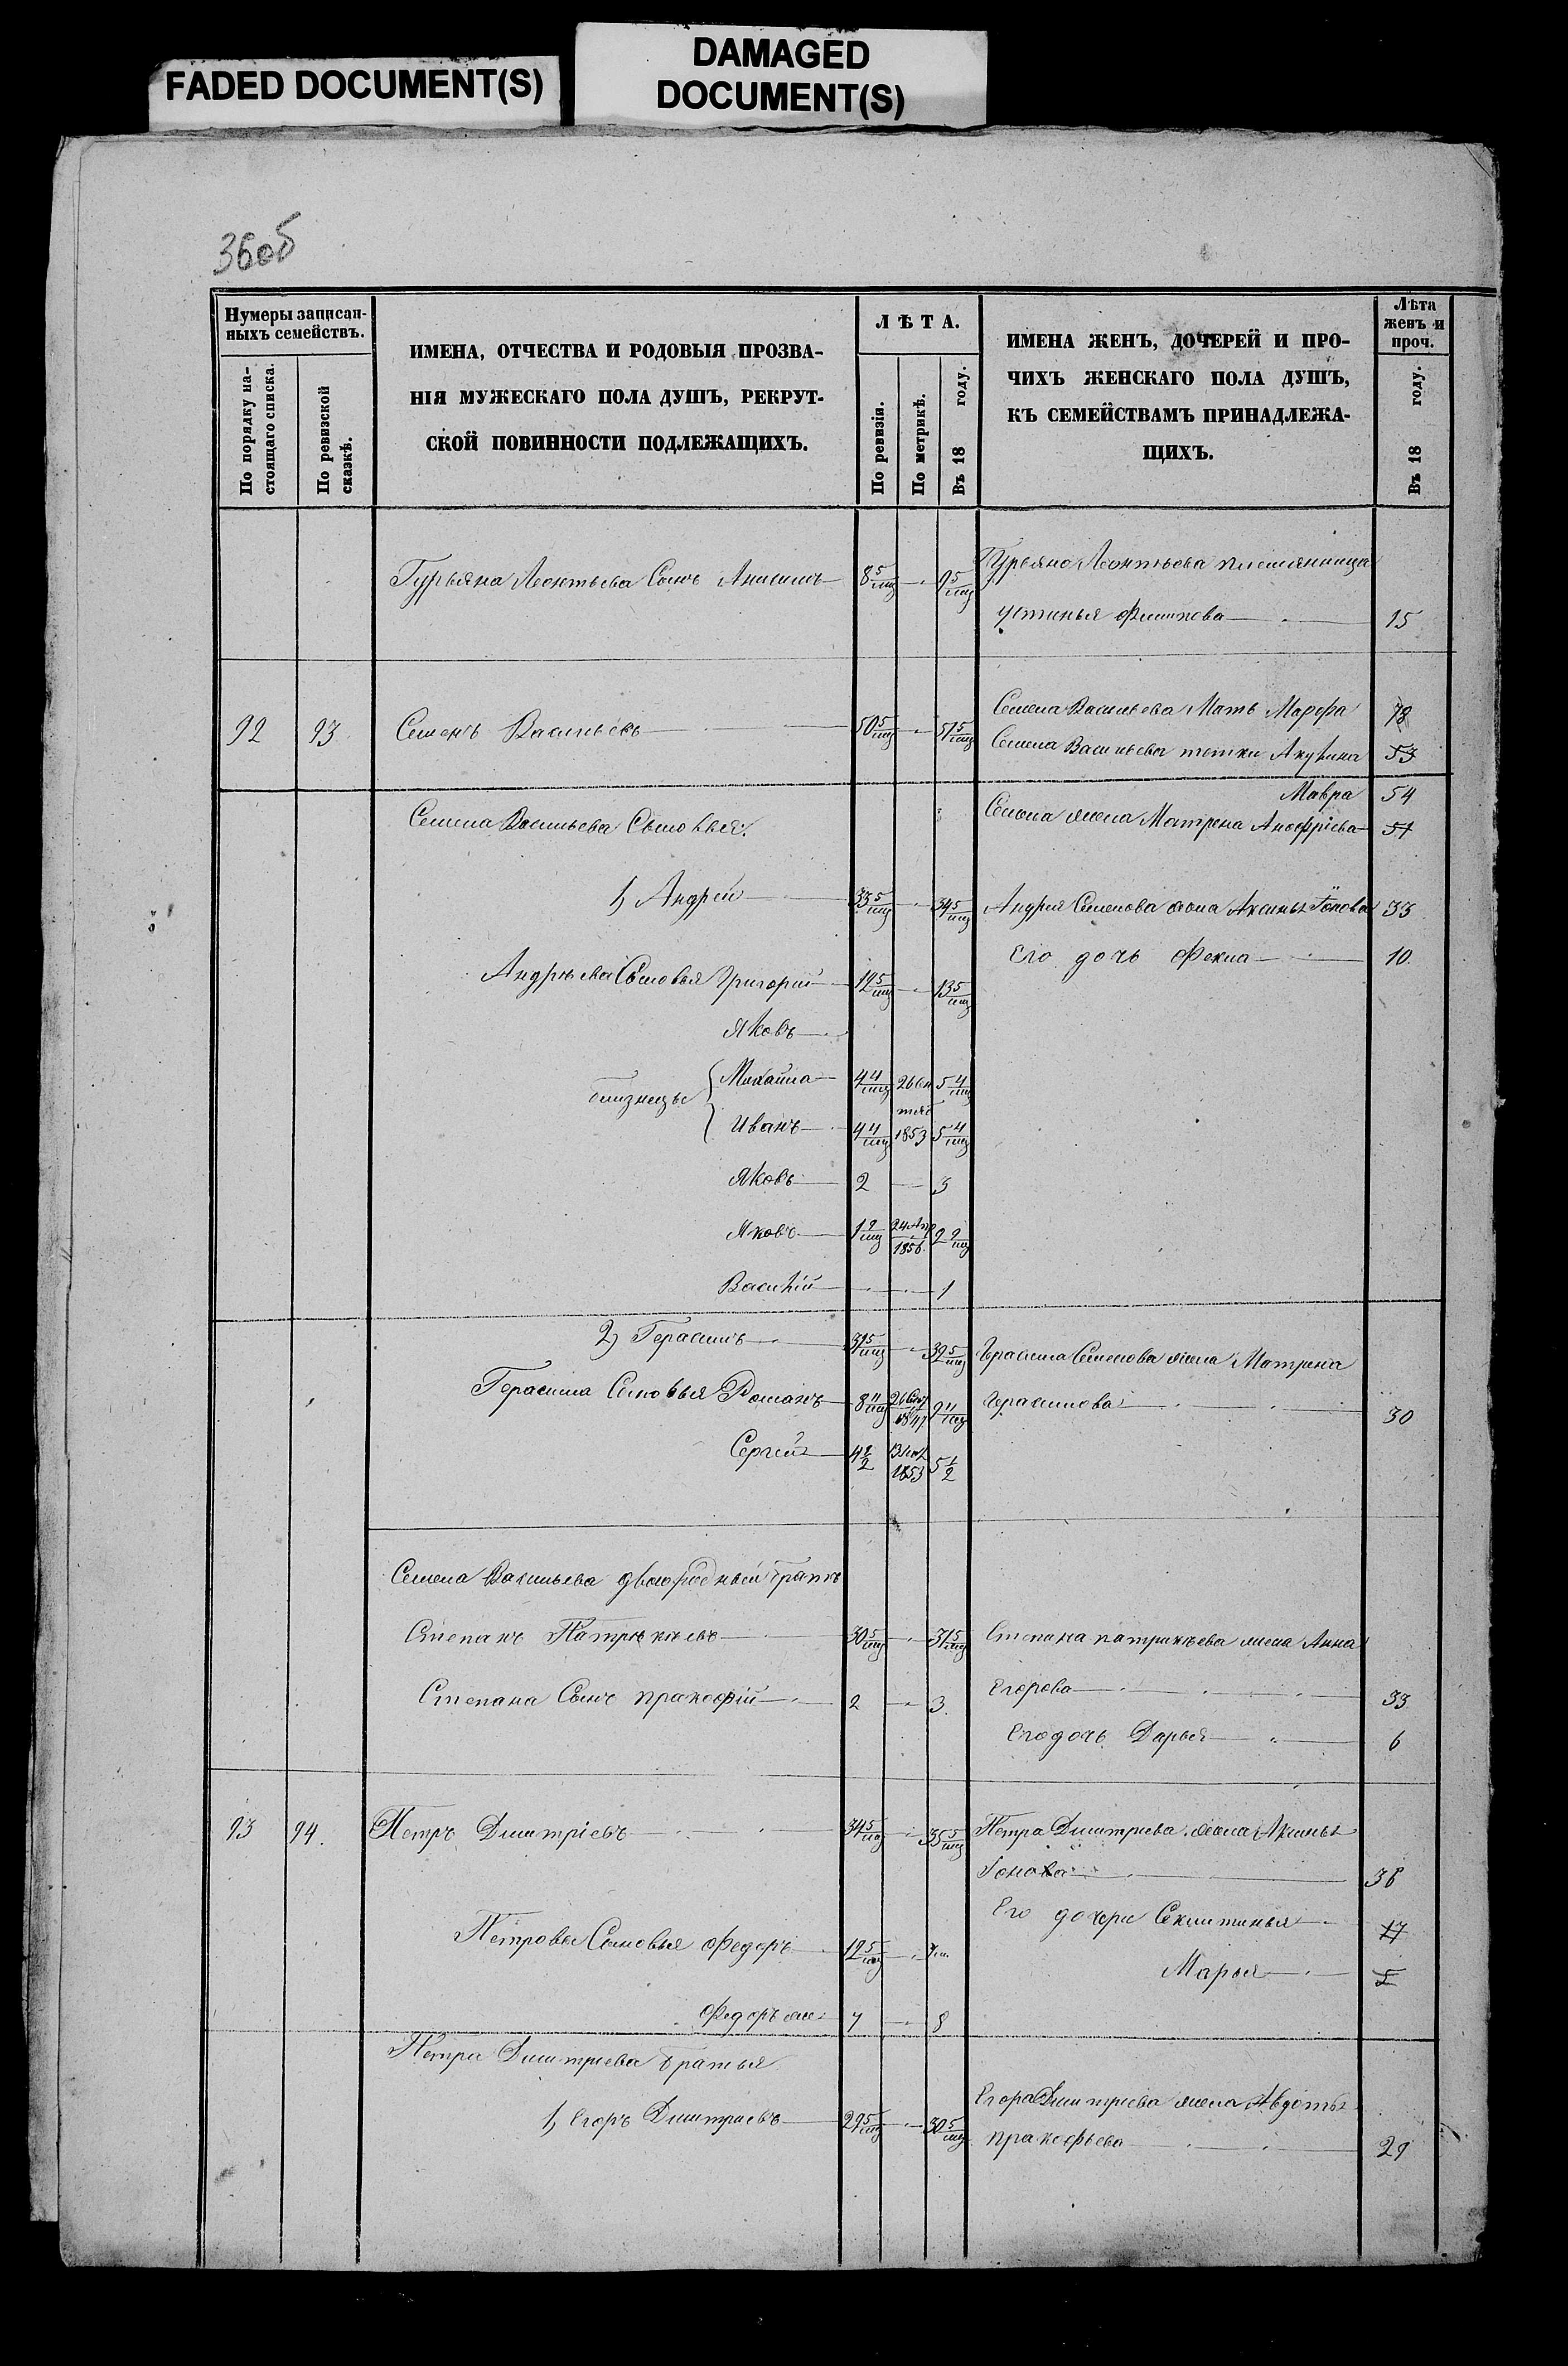 FADED DOCUMENT(S)
DAMAGED
DOCUMENT(S)
36об
Нумеры записан-
ныхъ семействъ.
По порядку на-
стоящаго списка.
По ревизской
сказкѣ.
ИМЕНА, ОТЧЕСТВА И РОДОВЫЯ ПРОЗВА-
НІЯ МУЖЕСКАГО ПОЛА ДУШЪ, РЕКРУТ-
СКОЙ ПОВИННОСТИ ПОДЛЕЖАЩИХЪ.
ЛѢТА.
По ревизіи.
По метрикѣ.
Въ 18 году.
ИМЕНА ЖЕНЪ, ДОЧЕРЕЙ И ПРО-
ЧИХЪ ЖЕНСКАГО ПОЛА ДУШЪ,
КЪ СЕМЕЙСТВАМЪ ПРИНАДЛЕЖА-
ЩИХЪ.
Лѣта
женъ и
проч.
Въ 18 году.
Гурьяна Леонтьева Сынъ Анисимъ 8 5/мц 9 5/мц
Гурьяна Леонтьева племянница
Устинья 15
92 93 Семенъ Васильевъ 50 5/мц 51 5/мц
Семена Васильева Мать Марфа 78
Семена Васильева тетки Акулина 53
Мавра 54
Семена Васильева Сыновья:
Семена жена Матрена Анофріева 51
1) Андрей 33 5/мц 34 5/мц Андрея Семенова жена Аксинья Іонова 33
Его дочь Фекла 10.
Андрѣева Сыновья Григорий 12 5/мц 13 5/мц
Яковъ
близнецы
Михайла 4 4/мц 26 5 4/мц
Иванъ 4 4/мц 1853 5 4/мц
Яковъ 2 3
Яковъ 1 9/мц 24 Апр 1856. 2 9/мц
Василій 1
2) Герасимъ 31 5/мц 32 5/мц Герасима Семенова жена Матрена
Герасима Сыновья Романъ 8 11/мц 26 1847 9 11/мц Герасимова 30
Сергей 4 1/2 1853 5 1/2
Семена Васильева двоюродный братъ
Степанъ Патрикѣевъ 30 5/мц 31 5/мц Степана патрикѣева жена Анна
Егорова 33
Степана Сынъ прокофій 2 3.
Его дочь Дарья 6
93 94. Петръ Дмитріевъ 34 5/мц 35 5/мц Петра Дмитриева жена Аксинья
Іонова 38
Его дочери Секлитинья 17
Петровы Сыновья Федоръ 12 5/мц
Марья 5
Федоръ же 7 8
Петра Дмитріева братья
1) Егоръ Дмитриевъ 29 5/мц 30 5/мц
Егора Дмитріева жена Авдотья
прокофьева 29